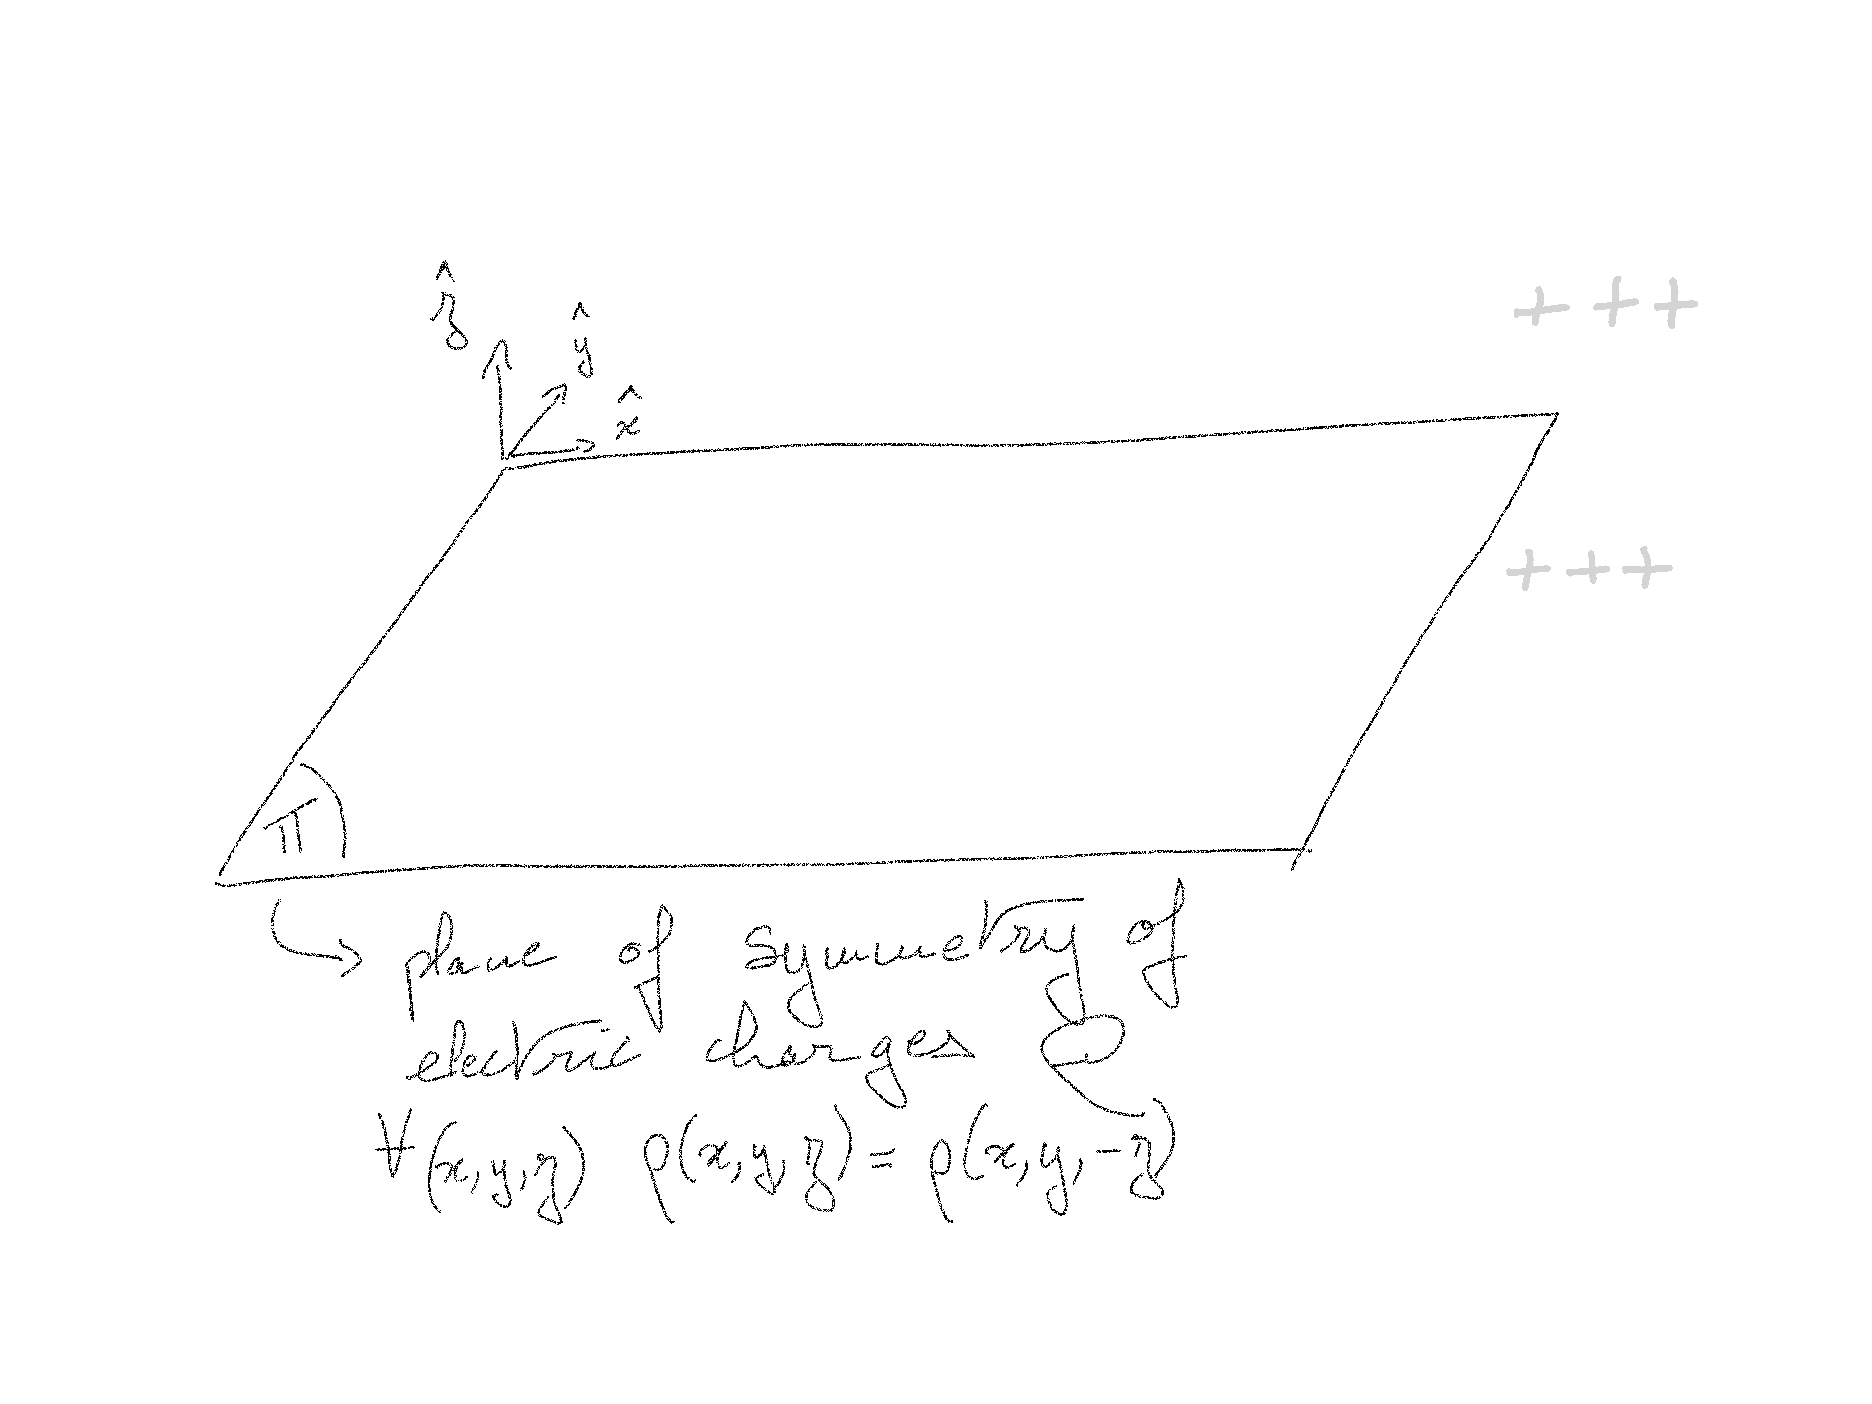 +++
ẑ
ŷ
x̂
+++
π
↳ plane of symmetry of
electric charges
∀(x,y,z) ρ(x,y,z) = ρ(x,y,-z)